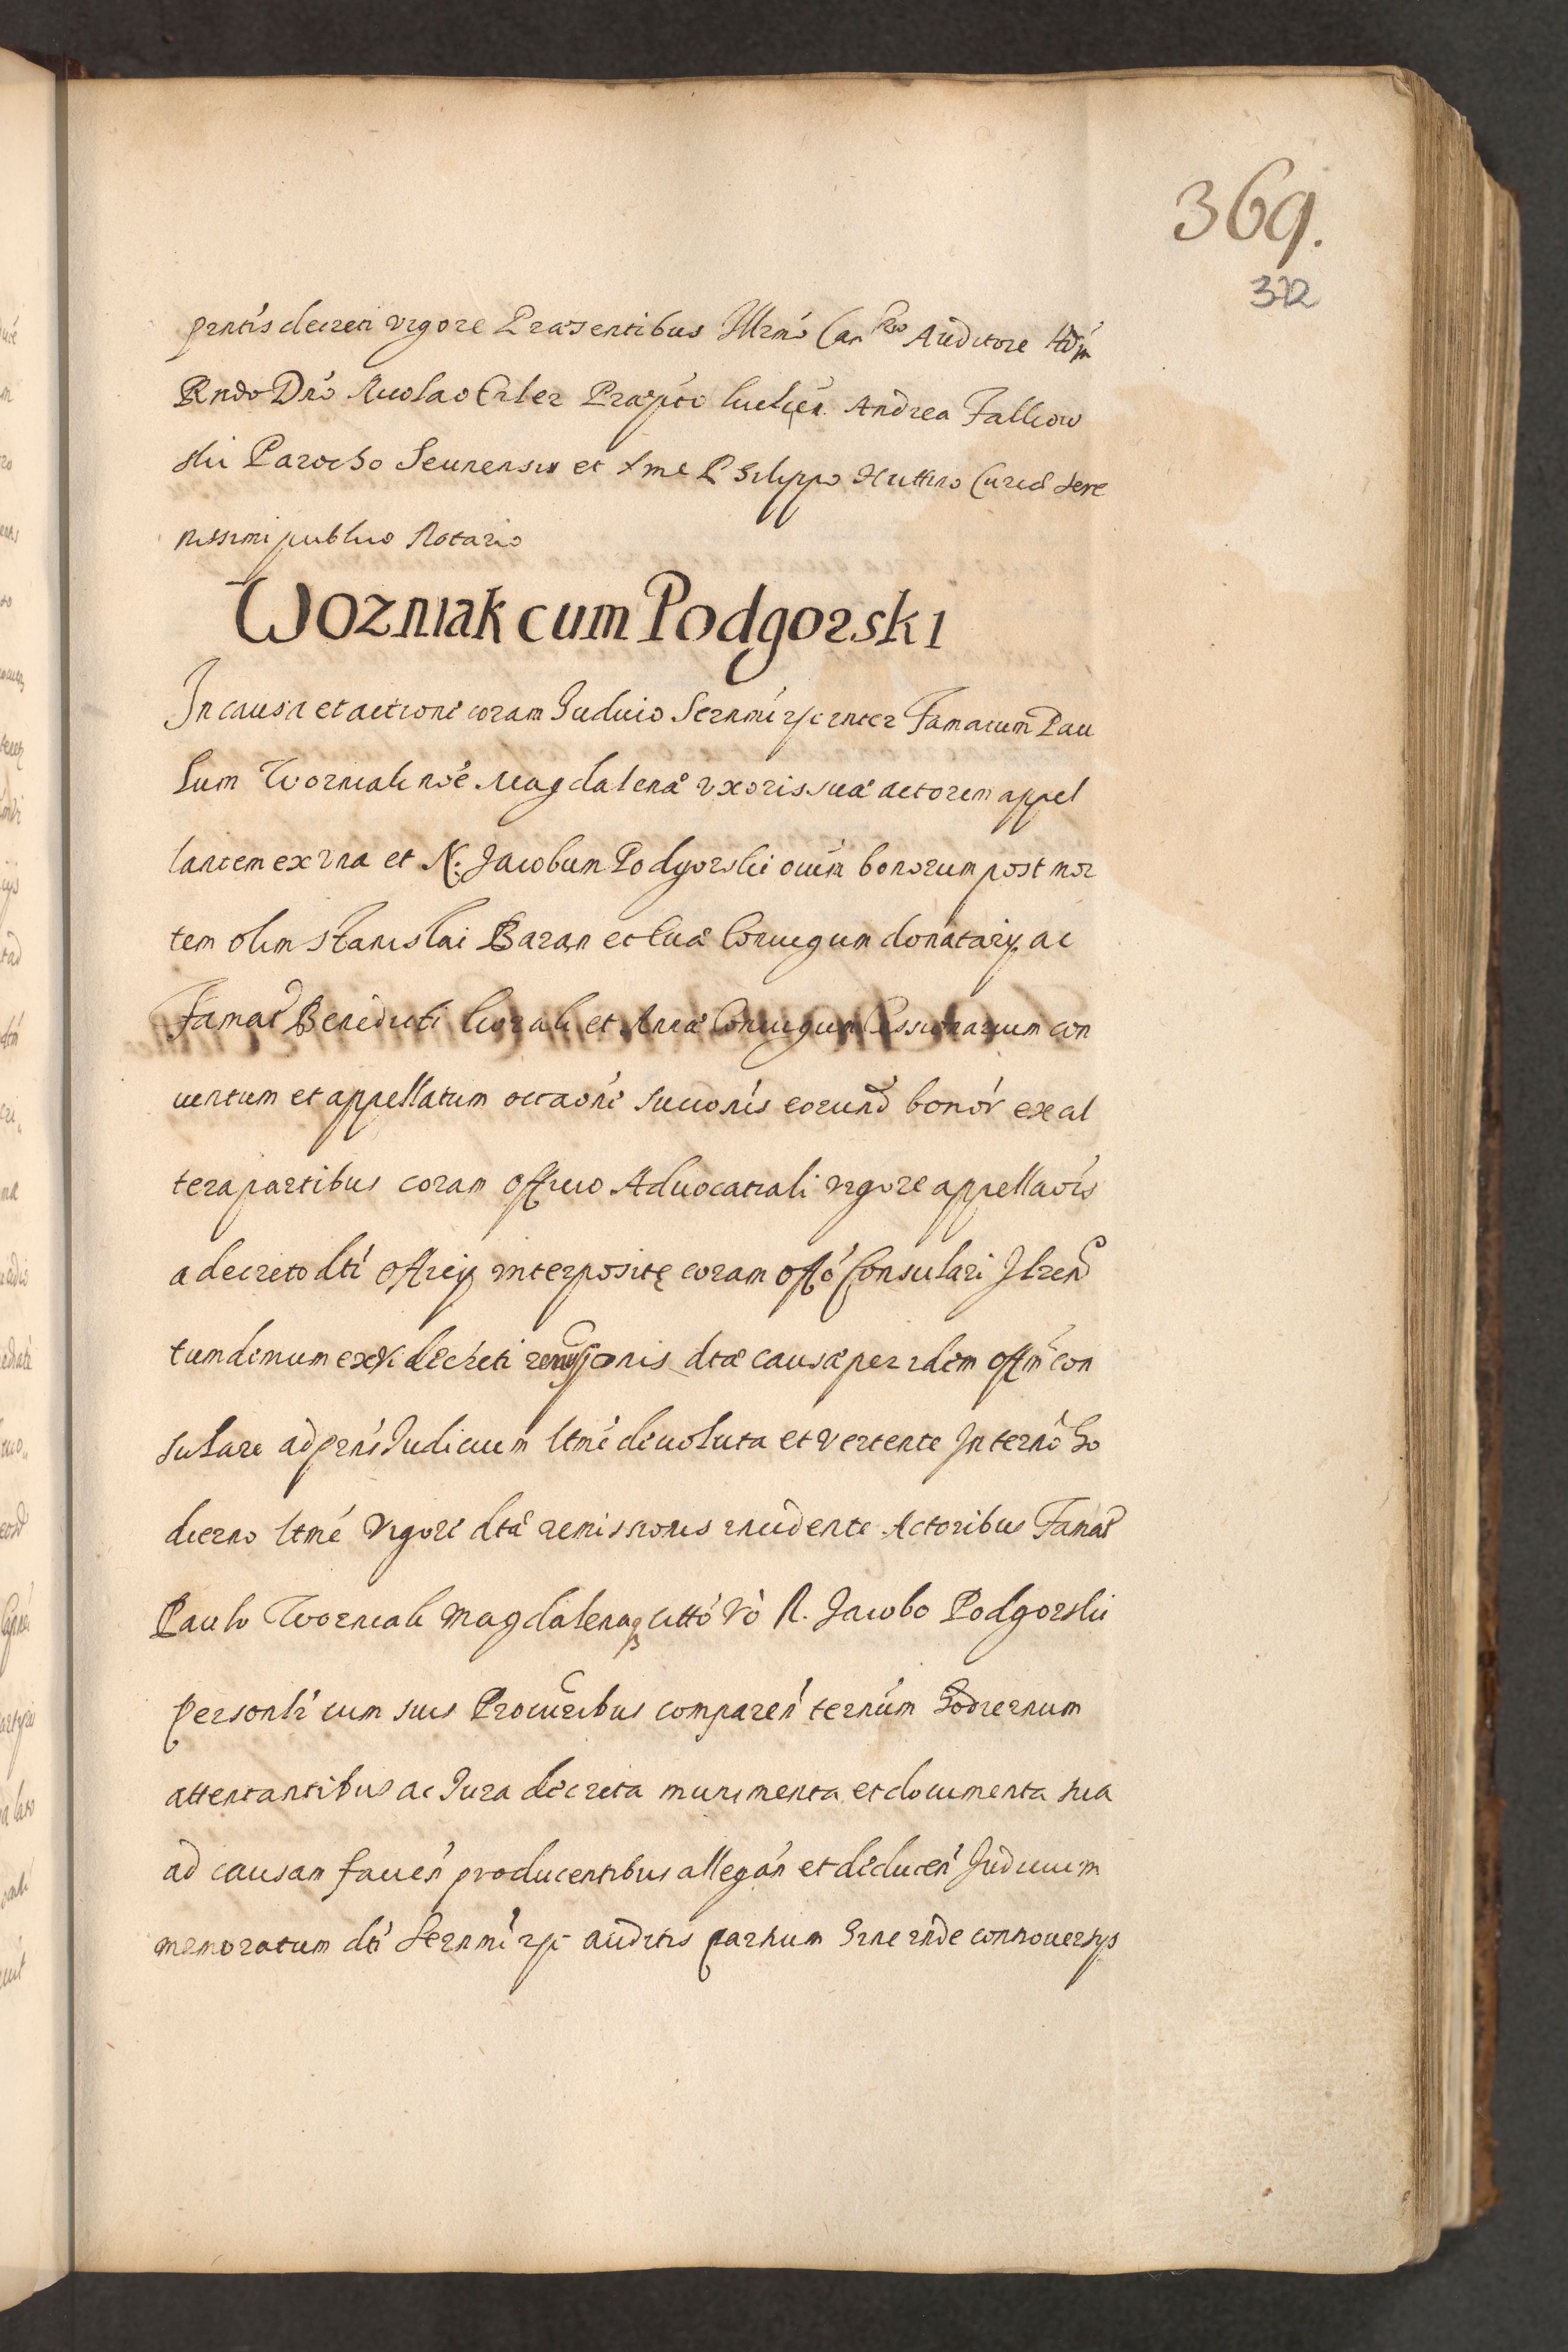 369.
372
prntis decreti vigore Præsentibus Illmo Can Rio Auditore Adm
Rndo Dno Nicolao Erler Præpto Andrea Falkow
ski Parocho Seunensis et Philippo Huttino Curiæ Sere
nissimi publico Notario
Wozniak cum Podgorski
In causa et actione coram Judicio Sernmi rpi inter Famatum Pau
lum Wozniak noe Magdalenæ uxoris suæ actorem appel
lantem ex una et N. Jacobum Podgorski ouim bonorum post mor
tem olim Stanislai Baran et Euæ Coniugum donatarij ac
Famat Benedicti et Annæ Coniugum Cessionarium con
uentum et appellatum occaone succonis eorund bonor ex al
tera partibus coram officio Aduocatiali vigore appellaois
a decreto dti officij interpositę coram offo Consulari Ilcen
tum demum ex vi decreti remissionis dtæ causæ per idem offm con
sulare ad prns Judicium ltme deuoluta et vertente In terno ho
dierno ltme vigore dtæ remissionis incidente Actoribus Famat
Paulo Wozniak Magdalenaq citto vo N. Jacobo Podgorski
personlr cum suis Procuribus comparen ternum hodiernum
attentantibus ac Jura decreta munimenta et documenta sua
ad causam fauen producentibus allegan et deducen Judicium
memoratum dti Sernmi rpi auditis partium hinc inde controuersijs